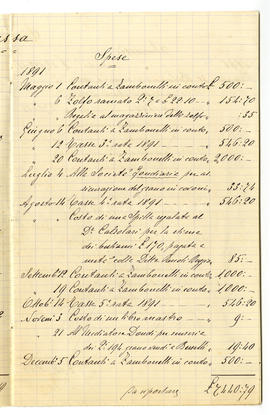 assa
Spese
1891
Maggio 1 Contanti a Zambonelli in conto £ 500:-
" 6 Zolfo ramato 2:7 a £ 22.10 - 154:70
Regalia al magazziniere dello zolfo - :55
Giugno 6 Contanti a Zambonelli in conto, 500:-
" 12 Tasse 3a rata 1891 - 546:20
" 20 Contanti a Zambonelli in conto, 2,000:-
Luglio 4 Alla Società per as
sicurazione del grano in covoni, 33:74
Agosto 14 Tasse 4a rata 1891 - 546:20
" Costo di una Spilla regalata al
Dr Calzolari per la
dei £ 170, pagata a
metà colla Zia 85:-
Settembe 12 Contanti a Zambonelli in conto " 1000:-
" 19 Contanti a Zambonelli in conto, 1000:-
Ottobe 14 Tasse 5a rata 1891 - 546:20
Novem 3 Costo di un libro mastro 9:-
" 21 Al Mediatore per senserie
di Q: 194, grano 19:40
Decembe 5 Contanti a Zambonelli in conto, 500:-
da riportare £ 7440:79